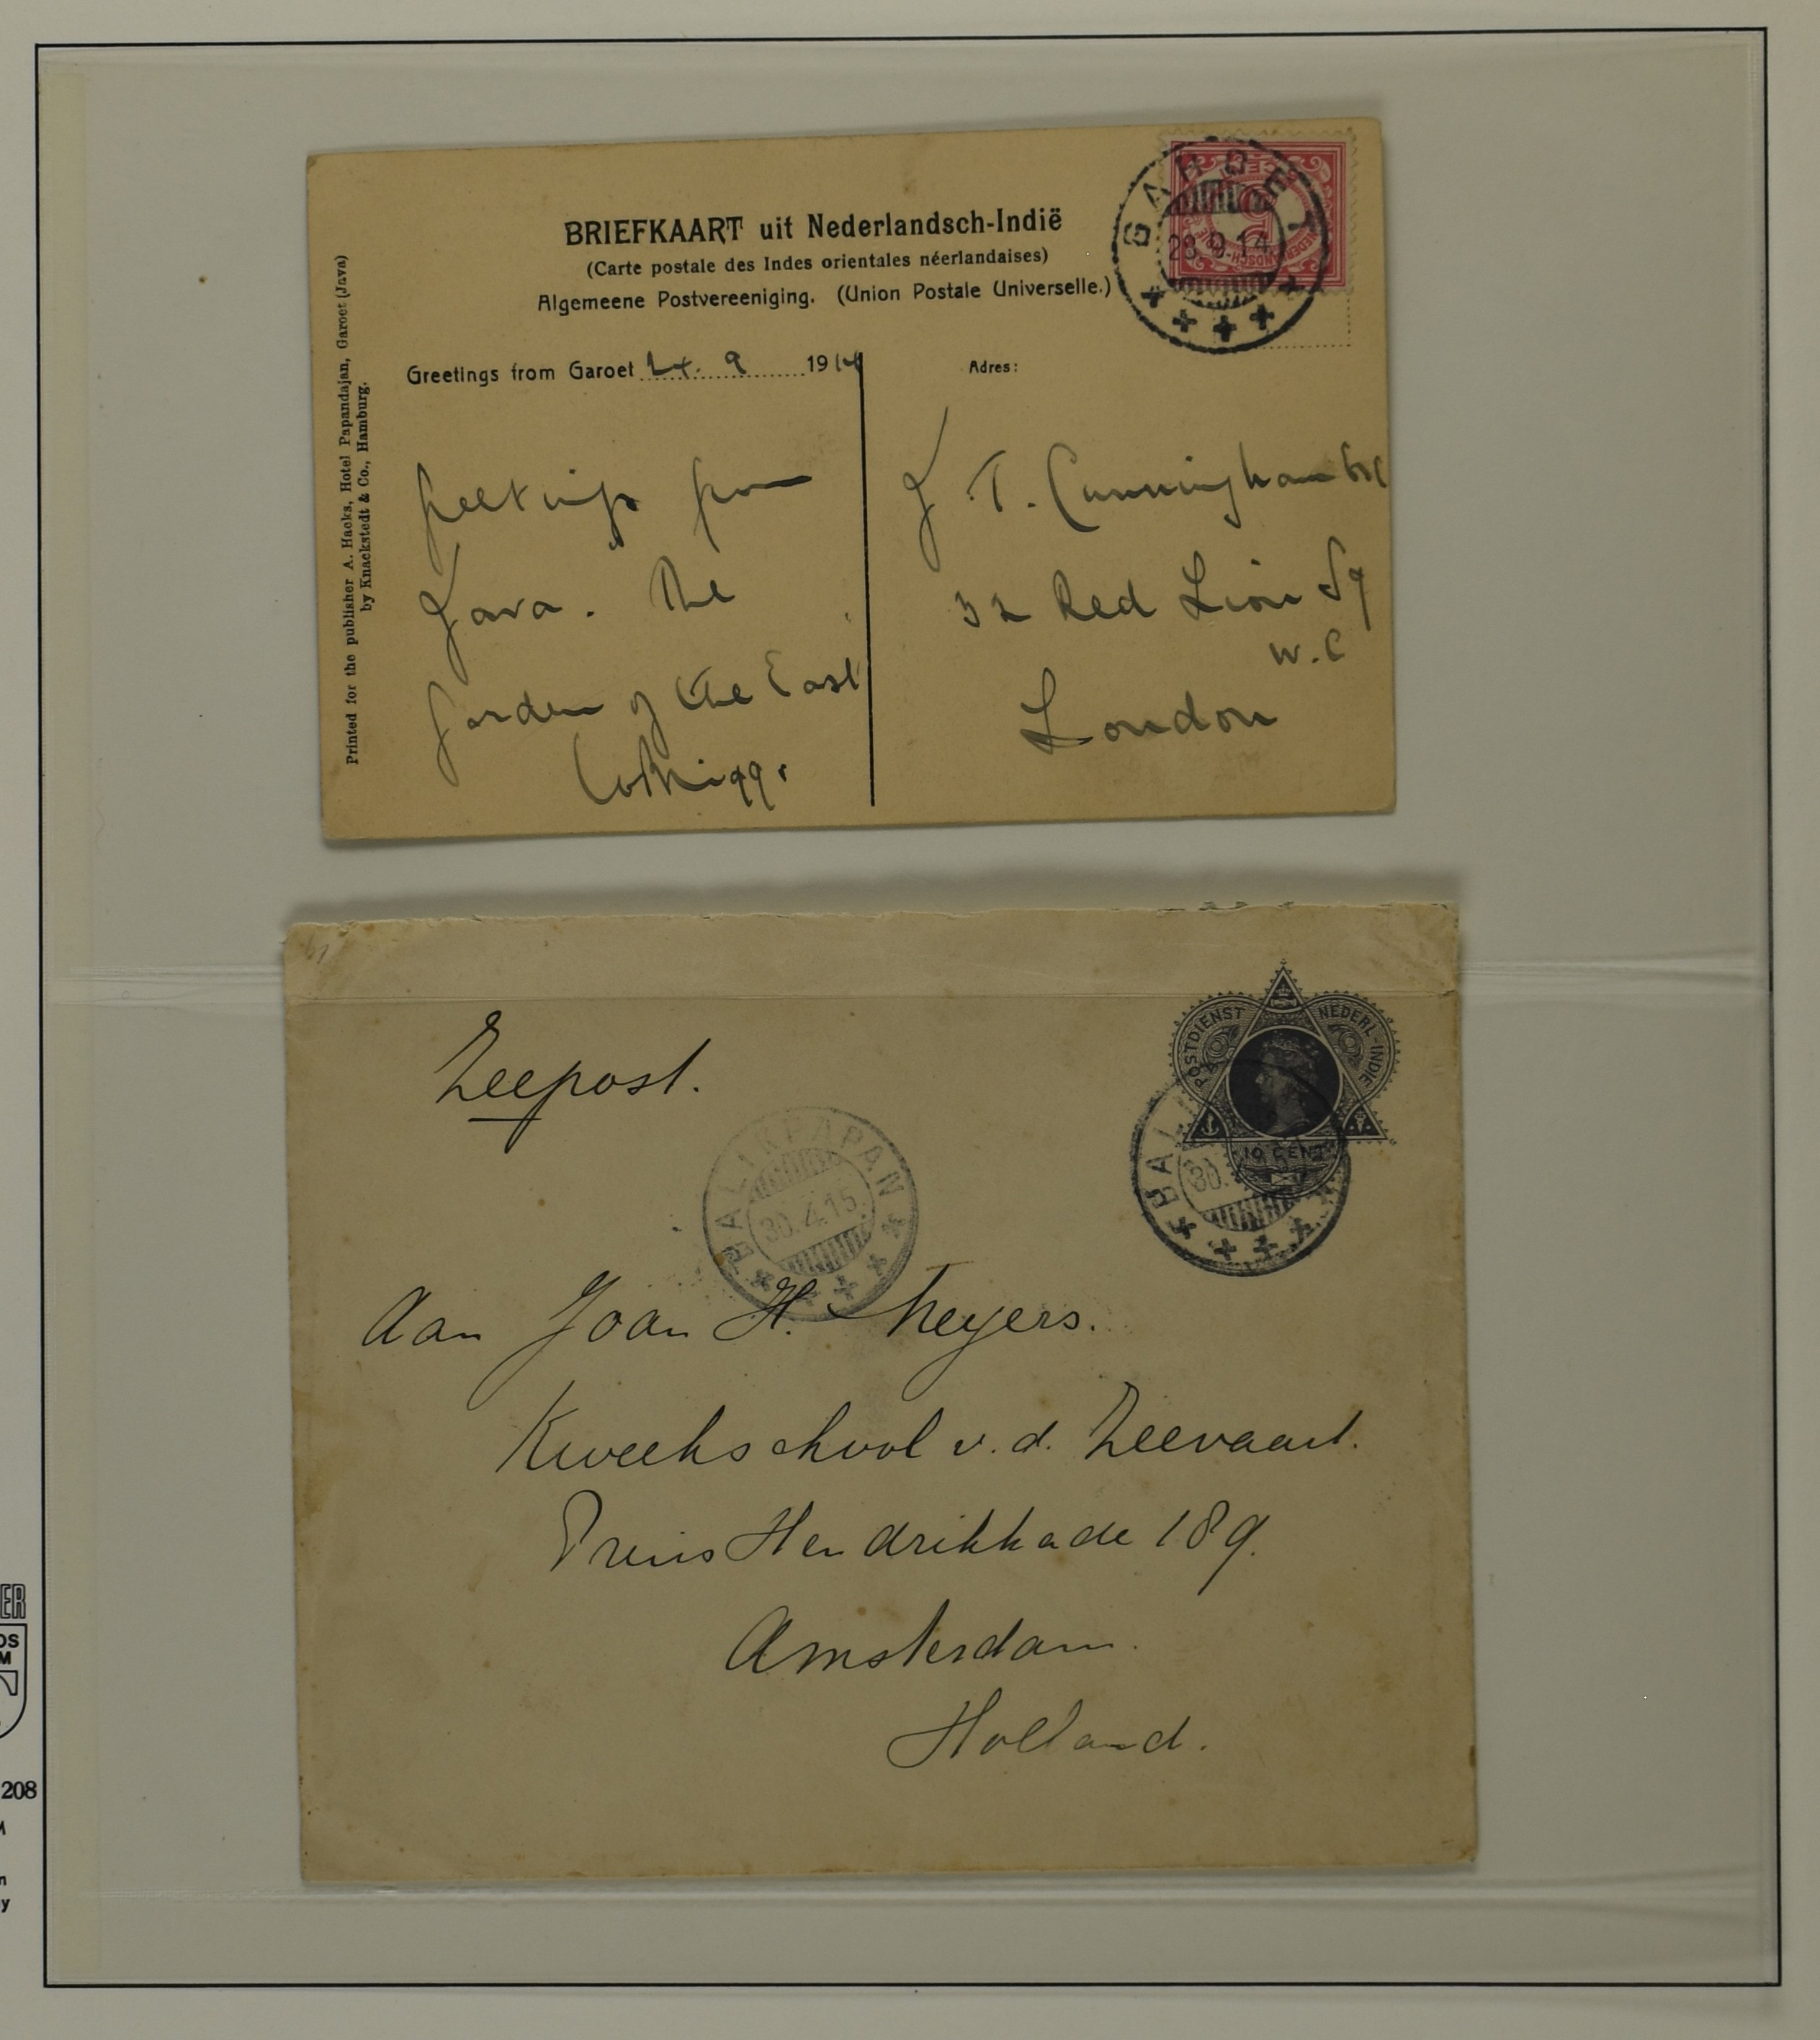 BRIEFKAART uit Nederlandsch-Indië
(Carte postale des Indes orientales néerlandaises)
Algemeene Postvereeniging. (Union Postale Universelle.)
GAROET
28.9.14
5
CENT
Printed for the publisher A. Hacks, Hotel Papandajan, Garoet (Java)
by Knackstedt & Co., Hamburg.
Greetings from Garoet 24. 9 1914
Greetings from
Java. The
Garden of the East
Adres:
J. T. Cunningham Esq
32 Red Lion Sq
W.C
London
POSTDIENST NEDERL-INDIE
10 CENT
Zeepost.
BALIKPAPAN
30.4.15
BALI
30.
Aan Joan H. Meyers.
Kweekschool v.d. Zeevaart.
Prins Hendrikkade 189.
Amsterdam.
Holland.
ER
OS
M
208
M
n
y